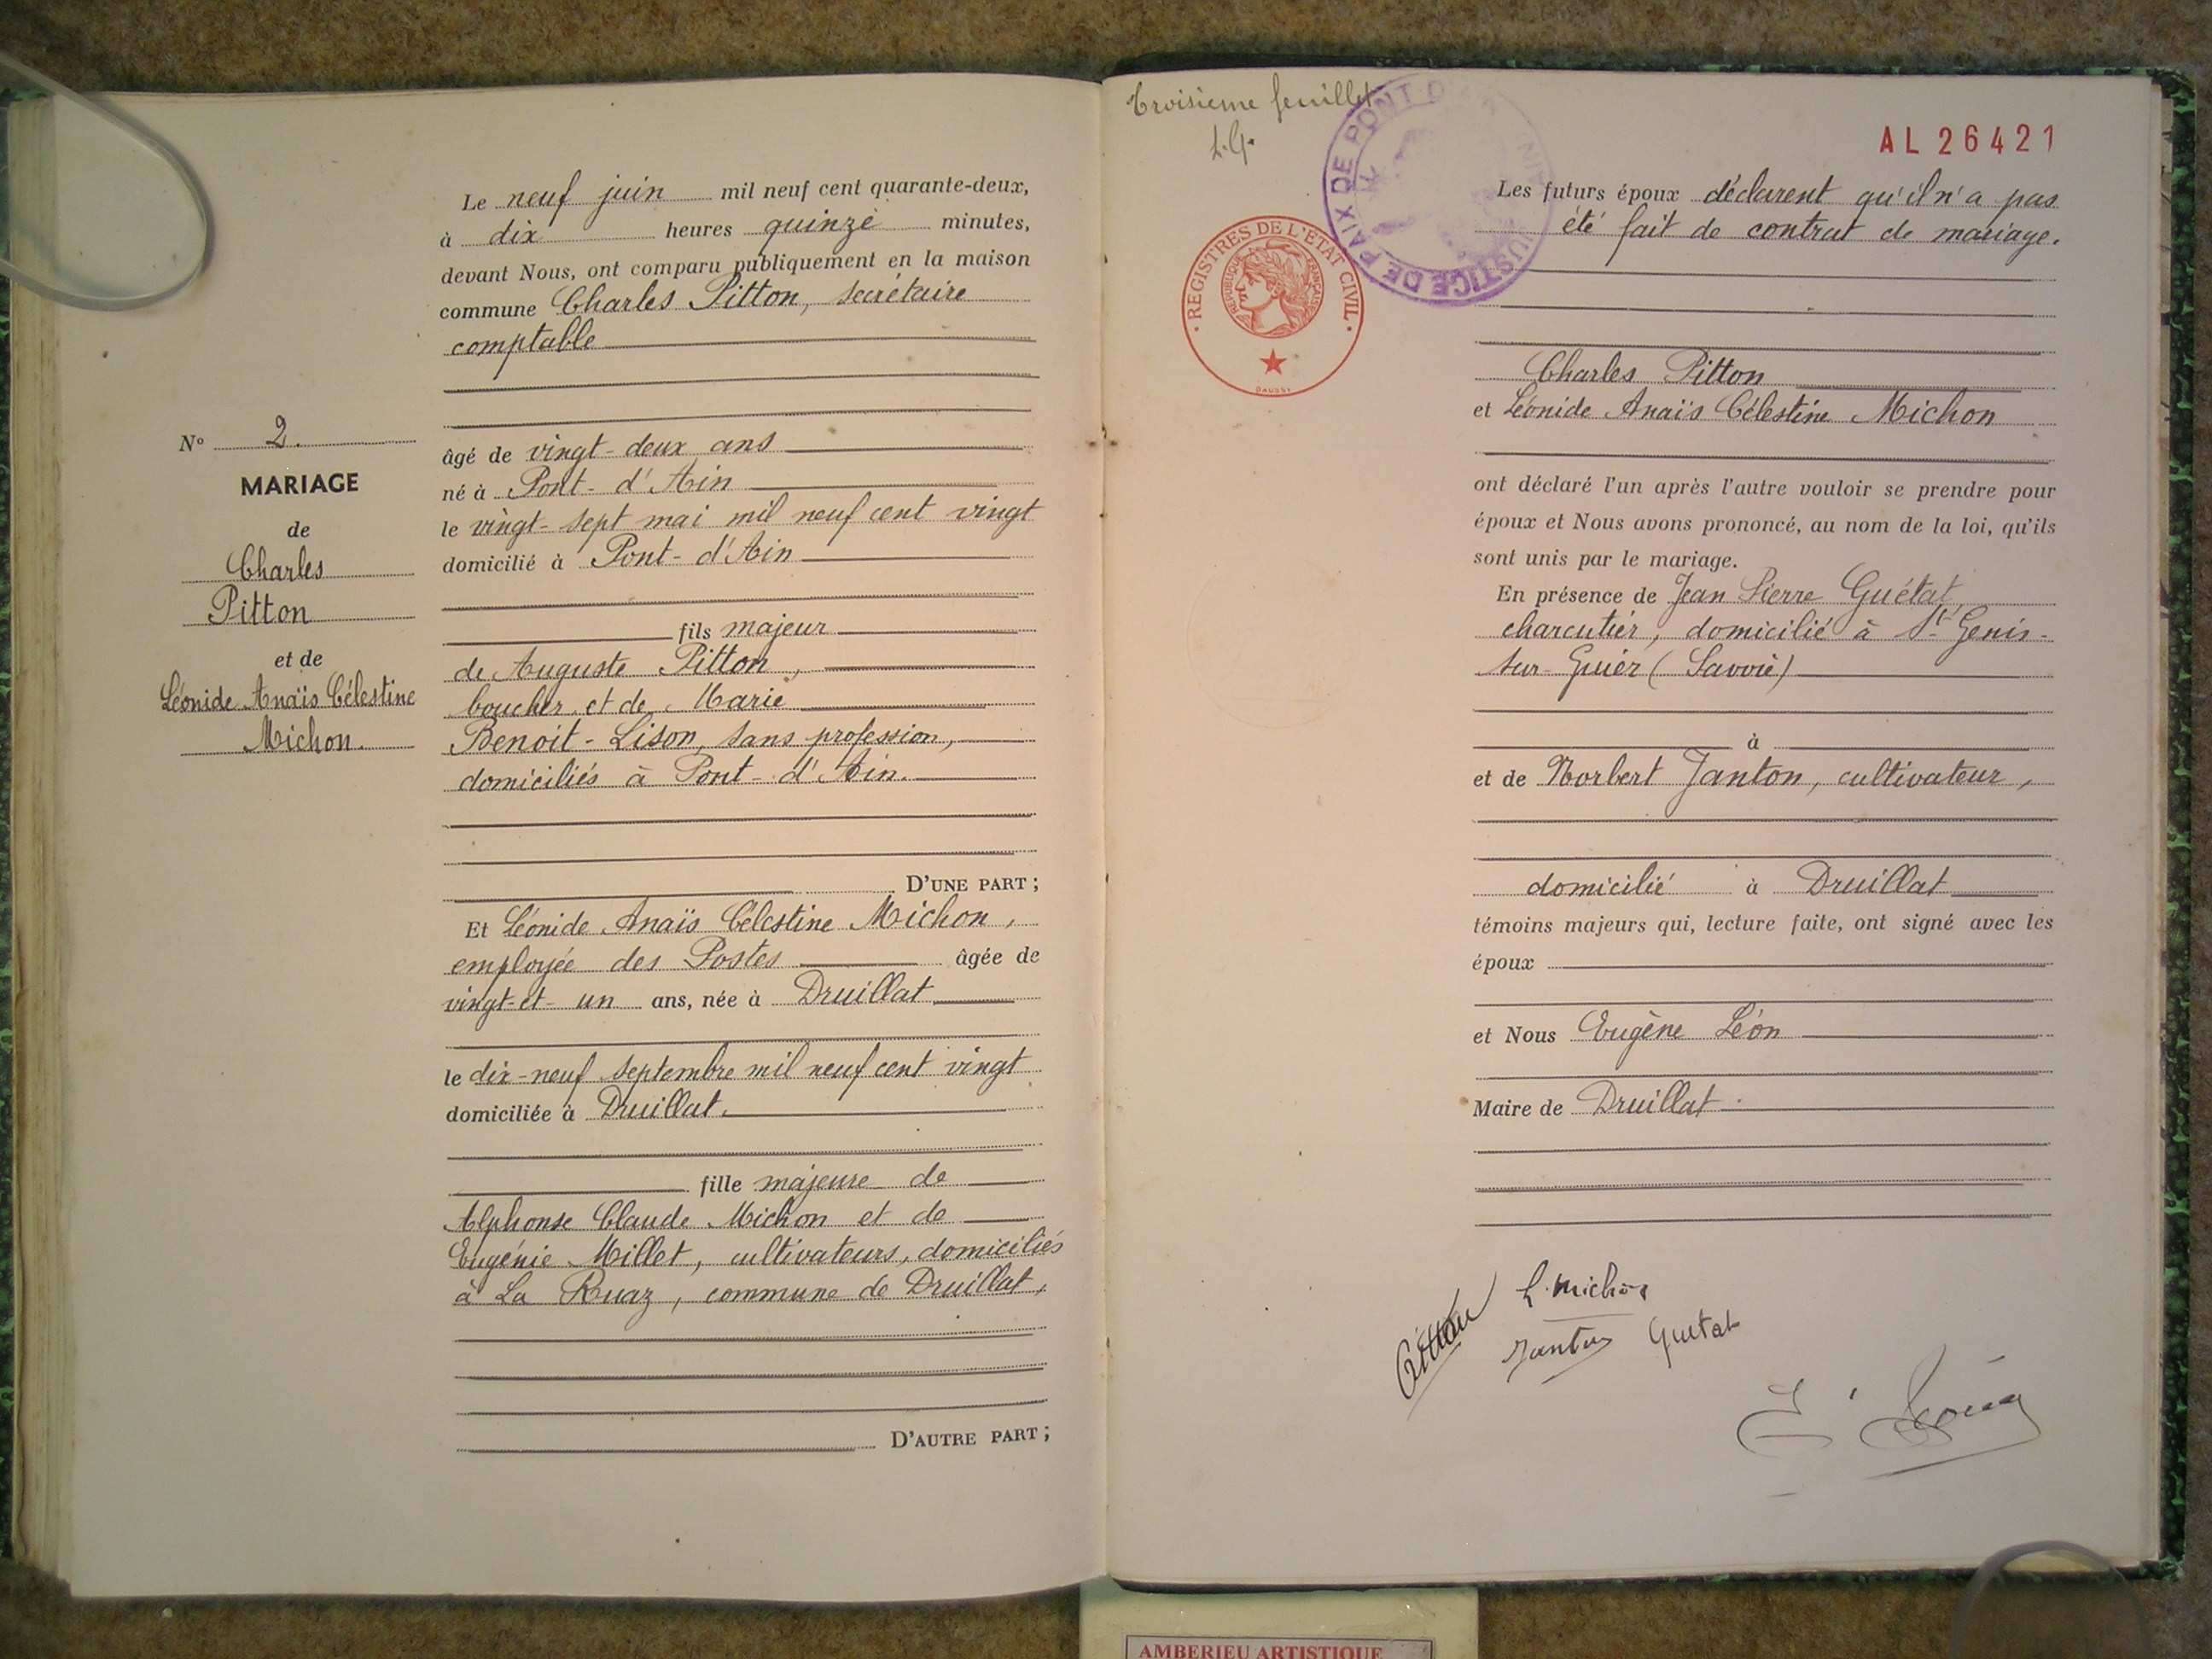 Nº 2.
MARIAGE
de
Charles
Pitton
et de
Léonide Anaïs Célestine
Michon.
Le neuf juin mil neuf cent quarante-deux,
à dix heures quinze minutes,
devant Nous, ont comparu publiquement en la maison
commune Charles Pitton, secrétaire
comptable
âgé de vingt-deux ans
né à Pont-d'Ain
le vingt-sept mai mil neuf cent vingt
domicilié à Pont-d'Ain
fils majeur
de Auguste Pitton,
boucher et de Marie
Benoit-Lison, sans profession,
domiciliés à Pont-d'Ain.
D'UNE PART ;
Et Léonide Anaïs Célestine Michon,
employée des Postes âgée de
vingt-et-un ans, née à Druillat
le dix-neuf septembre mil neuf cent vingt
domiciliée à Druillat.
fille majeure de
Alphonse Claude Michon et de
Eugénie Millet, cultivateurs, domiciliés
à La Ruaz, commune de Druillat,
D'AUTRE PART ;
Troisième feuillet
JUSTICE DE PAIX DE PONT D'AIN
AL 26421
REGISTRES DE L'ETAT CIVIL
REPUBLIQUE FRANÇAISE
Les futurs époux déclarent qu'il n'a pas
été fait de contrat de mariage.
Charles Pitton
et Léonide Anaïs Célestine Michon
ont déclaré l'un après l'autre vouloir se prendre pour
époux et Nous avons prononcé, au nom de la loi, qu'ils
sont unis par le mariage.
En présence de Jean Pierre Guétat,
charcutier, domicilié à St Genis-
sur-Guier (Savoie)
à
et de Norbert Janton, cultivateur,
domicilié à Druillat
témoins majeurs qui, lecture faite, ont signé avec les
époux
et Nous Eugène Léon
Maire de Druillat.
Pitton L. Michon
Janton Guétat
E. Léon
AMBERIEU ARTISTIQUE